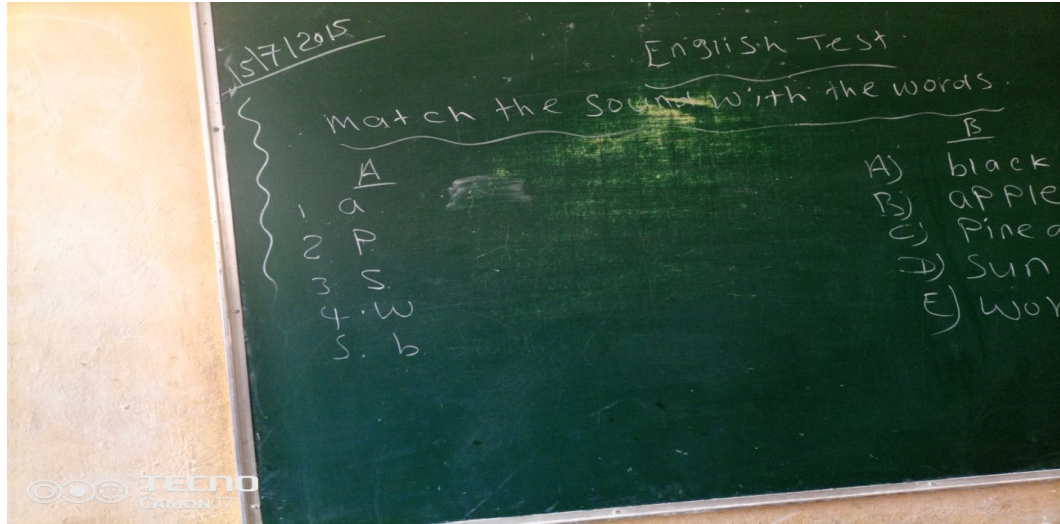 15/7/2015
English Test.
Match the Sound with the words.
A
1. a
2. P
3. S.
4. W
5. b.
B
A) black
B) apple
C) Pine a
D) Sun
E) Wor
TECNO
CAMON 17